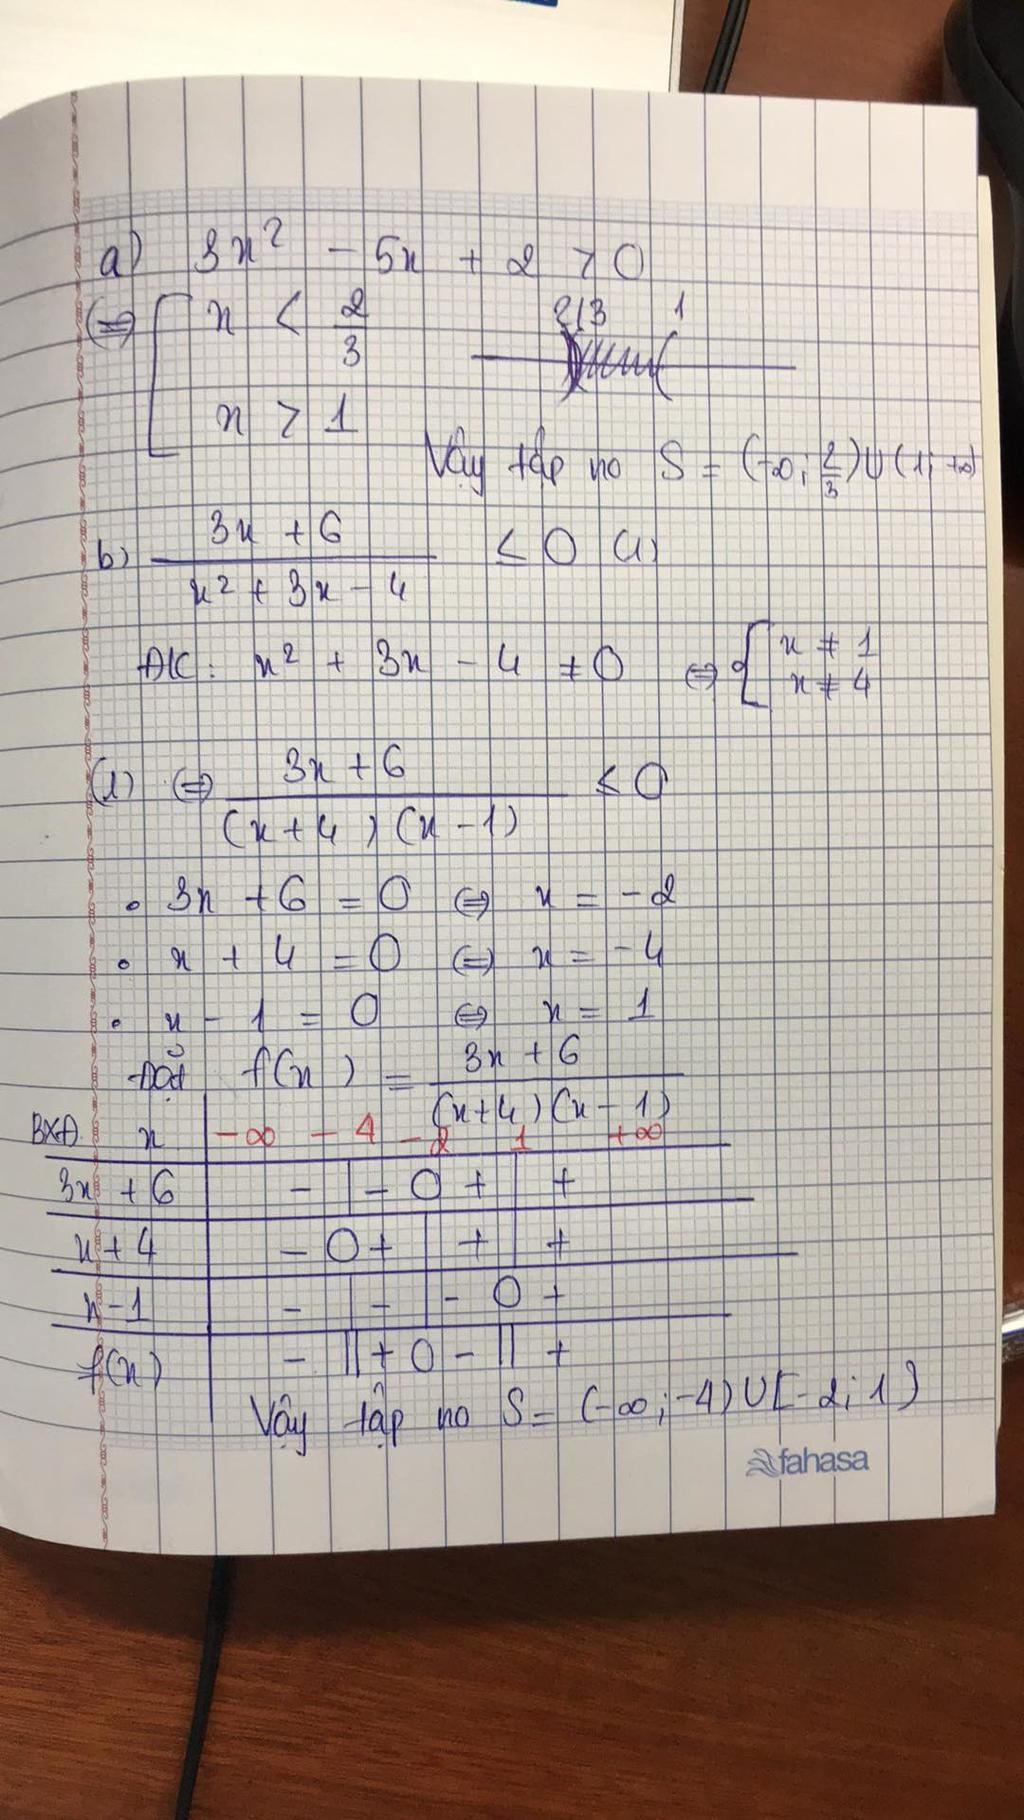 a) 3x² - 5x + 2 > 0
⇔ [ x < 2/3
2/3 1
x > 1
Vậy tập no S = (-∞; 2/3) ∪ (1; +∞)
b) (3x + 6)/(x² + 3x - 4) ≤ 0 (1)
ĐK: x² + 3x - 4 ≠ 0 ⇔ { x ≠ 1
x ≠ 4
(1) ⇔ (3x + 6)/((x + 4)(x - 1)) ≤ 0
• 3x + 6 = 0 ⇔ x = -2
• x + 4 = 0 ⇔ x = -4
• x - 1 = 0 ⇔ x = 1
Đặt f(x) = (3x + 6)/((x+4)(x-1))
BXĐ x -∞ -4 -2 1 +∞
3x + 6 - | - 0 + | +
x + 4 - 0 + | + | +
x - 1 - | - | - 0 +
f(x) - || + 0 - || +
Vậy tập no S = (-∞; -4) ∪ [-2; 1)
fahasa